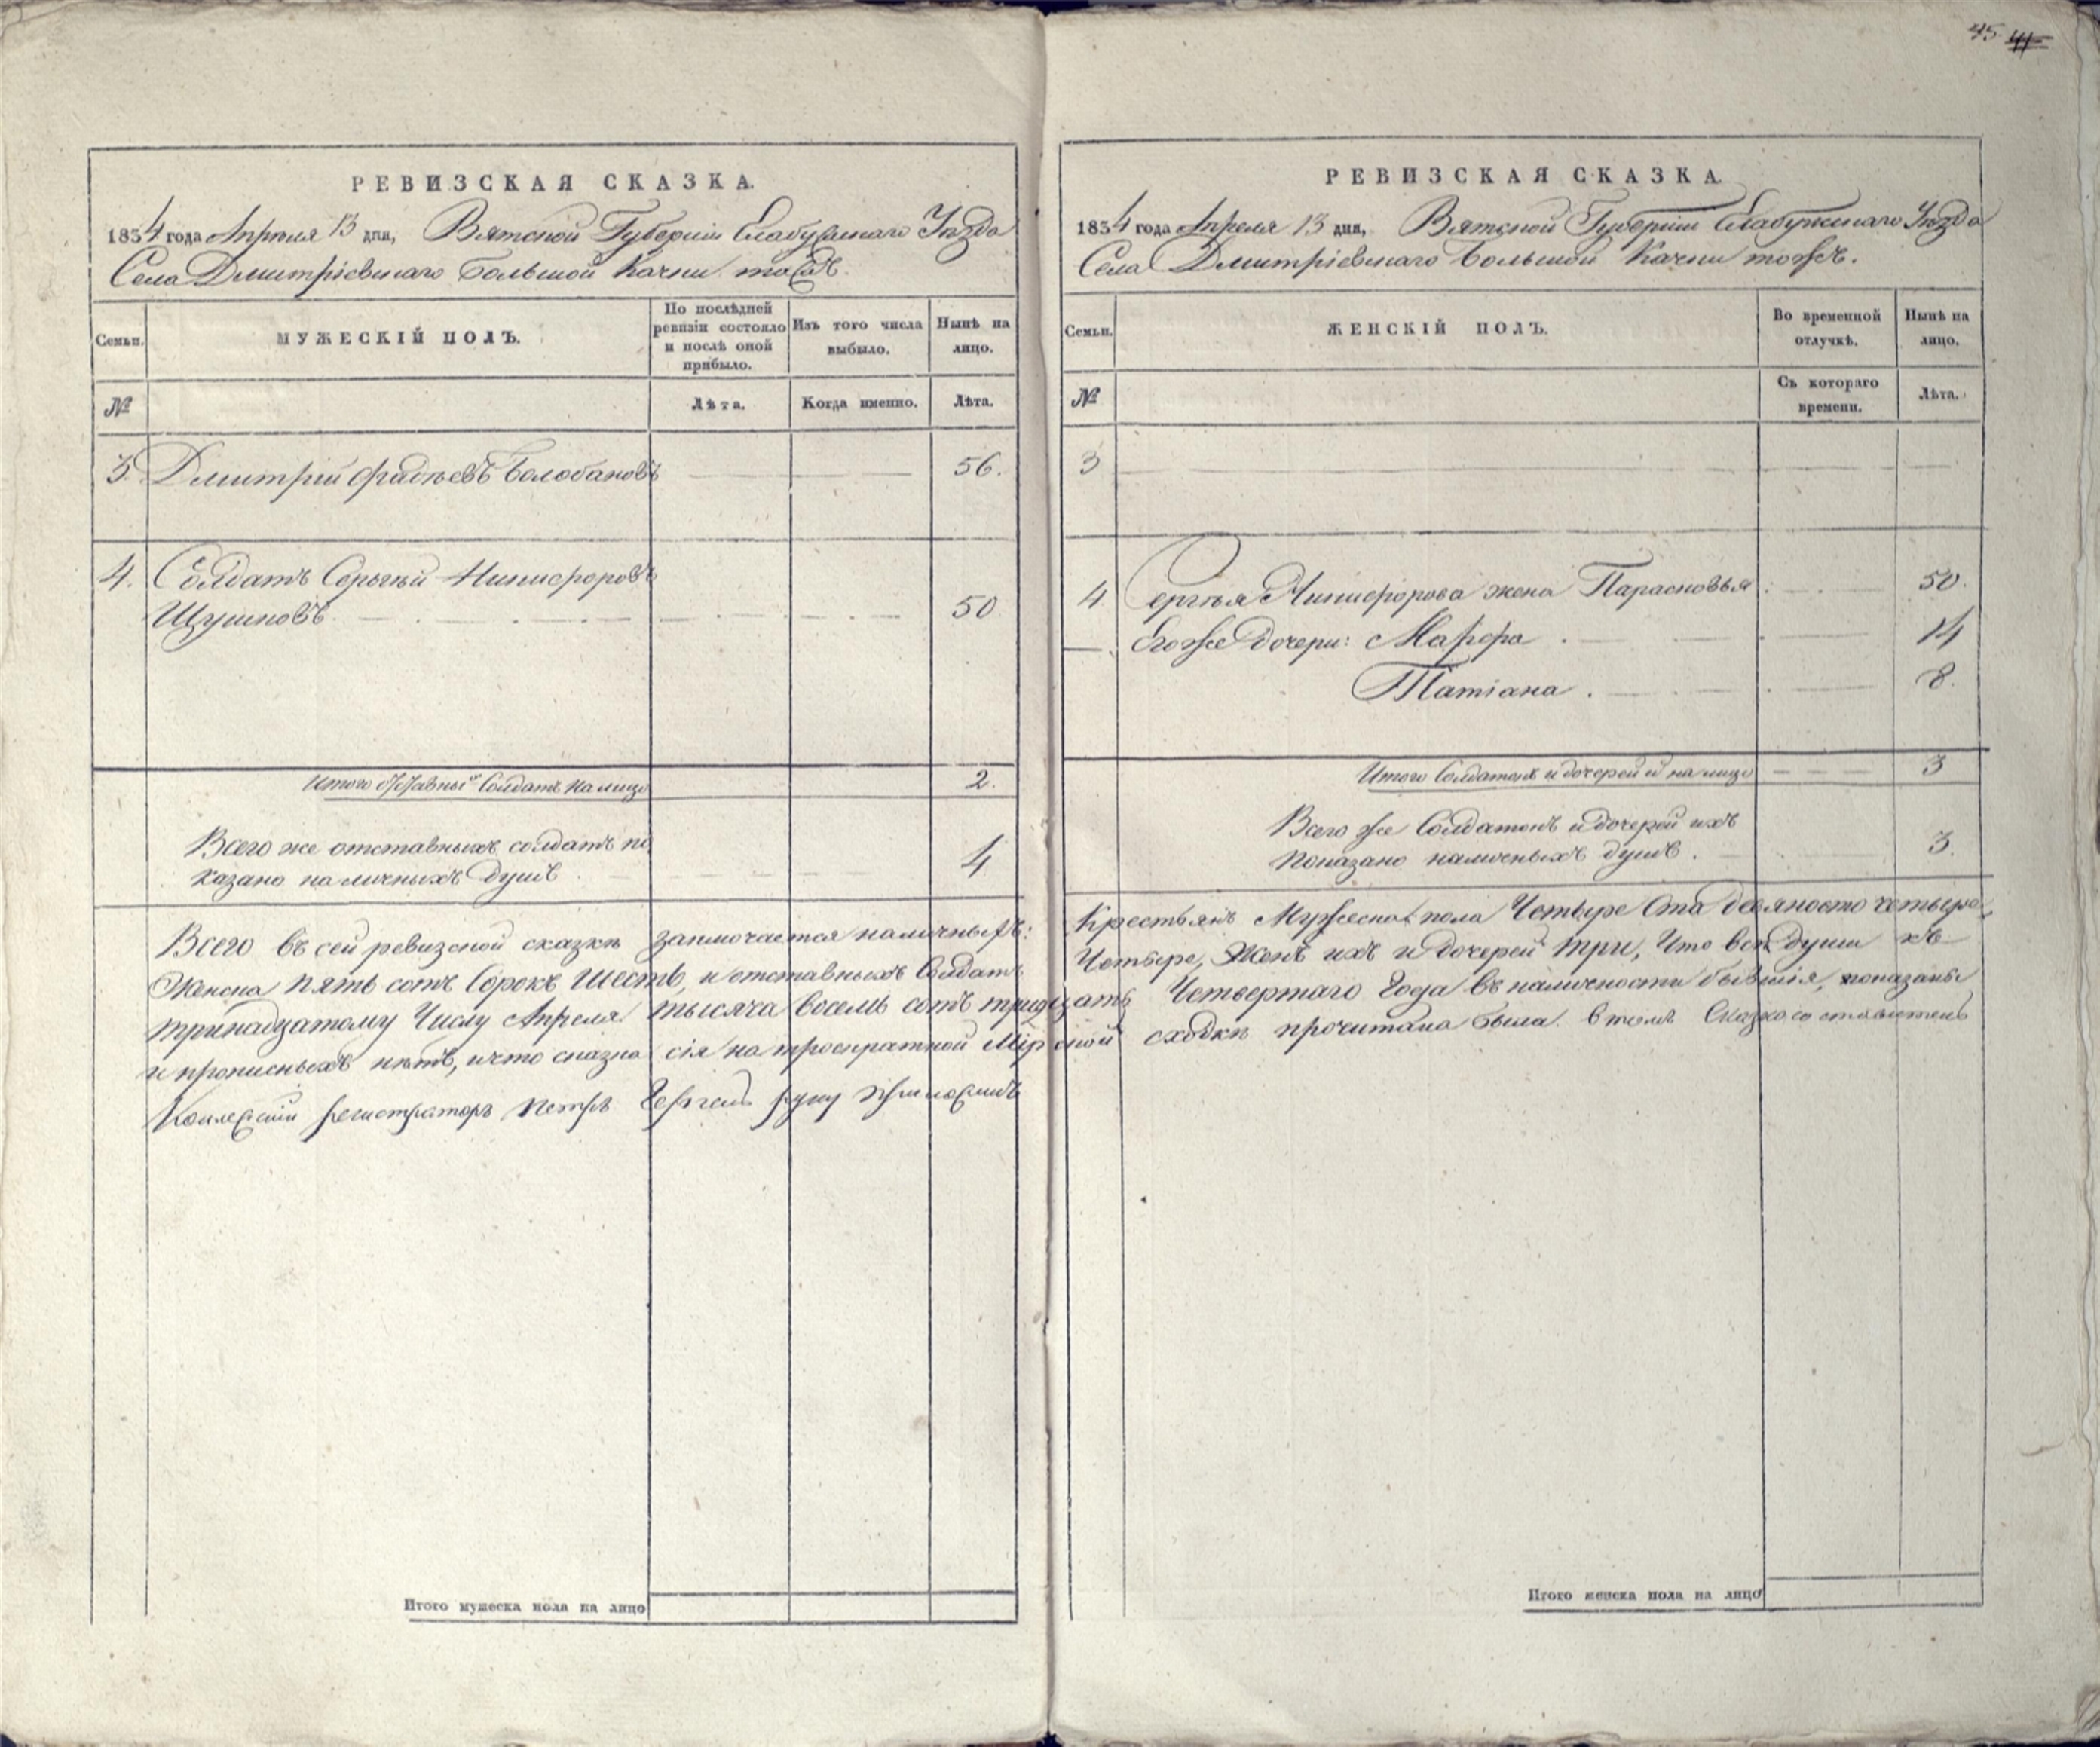 45 41
РЕВИЗСКАЯ СКАЗКА.
1834 года Апреля 13 дня, Вятской Губернiи Елабужскаго Уѣзда
Села Дмитрiевскаго Большой Качки тожъ.
Семьи.
МУЖЕСКIЙ ПОЛЪ.
По послѣдней
ревизiи состояло
и послѣ оной
прибыло.
Изъ того числа
выбыло.
Нынѣ на
лицо.
№
Лѣта.
Когда именно.
Лѣта.
3. Дмитрiй Фадѣевъ Болобановъ 56.
4. Солдатъ Сергѣй Никифоровъ
Щушковъ 50
Итого отставныхъ Солдатъ на лицо 2.
Всего же отставныхъ солдатъ по
казано наличныхъ душъ 4
Всего въ сей ревизской сказкѣ заключается наличныхъ:
Женска пять сотъ сорокъ шесть, и отставныхъ Солдатъ
тринадцатому Числу Апреля тысяча восемь сотъ тридцать
и прописныхъ нѣтъ, и что сказка сiя на троекратной Мiрской
Коллежскiй регистраторъ Петръ руку приложилъ
Итого мужеска пола на лицо
РЕВИЗСКАЯ СКАЗКА.
1834 года Апреля 13 дня, Вятской Губернiи Елабужскаго Уѣзда
Села Дмитрiевскаго Большой Качки тожъ.
Семьи.
ЖЕНСКIЙ ПОЛЪ.
Во временной
отлучкѣ.
Нынѣ на
лицо.
№
Съ котораго
времени.
Лѣта.
3
4 Сергѣя Никифорова жена Парасковья 50.
Егоже дочери: Марфа 14
Татiана 8.
Итого Солдатокъ и дочерей на лицо 3
Всего же Солдатокъ и дочерей ихъ
показано наличныхъ душъ 3.
Крестьянъ Мужеска пола Четыре Ста девяносто четыре
Четыре, Женъ ихъ и дочерей три, Что всѣ души къ
Четвертаго Года въ наличности бывшiя, показаны
сходкѣ прочитана была. в томъ Сказкосоставитель
Итого женска пола на лицо